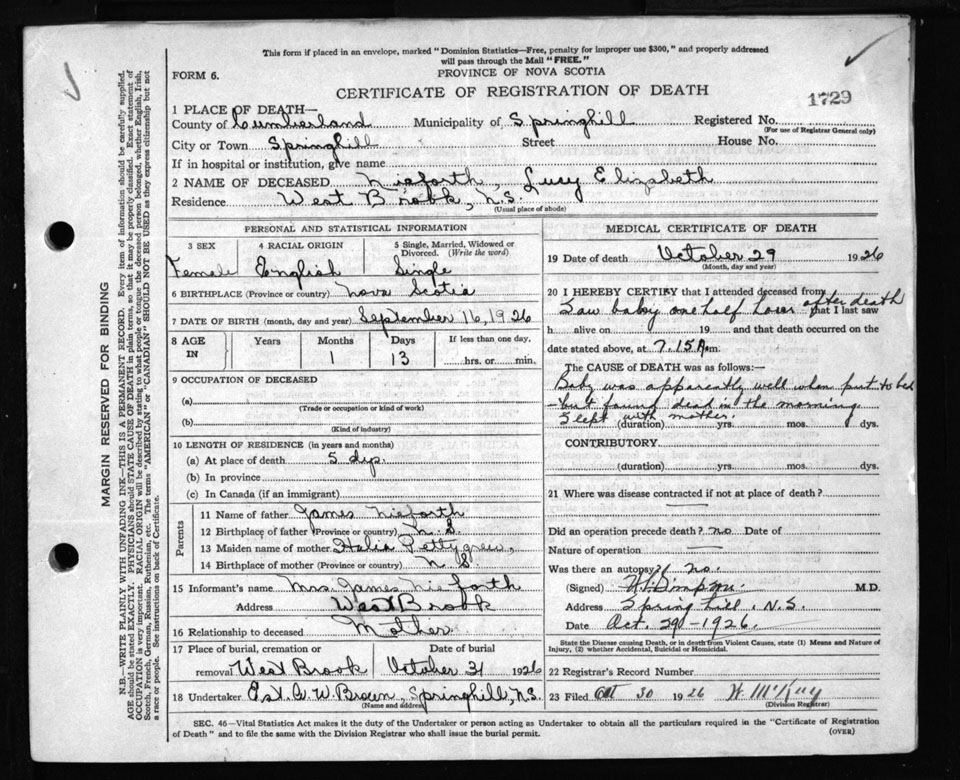 This form if placed in an envelope, marked "Dominion Statistics—Free, penalty for improper use $300," and properly addressed
will pass through the Mail "FREE."
FORM 6.
PROVINCE OF NOVA SCOTIA
CERTIFICATE OF REGISTRATION OF DEATH
1729
1 PLACE OF DEATH—
County of Cumberland Municipality of Springhill Registered No.
(For use of Registrar General only)
City or Town Springhill Street House No.
If in hospital or institution, give name
2 NAME OF DECEASED Nieforth, Lucy Elizabeth
Residence West Brook, N.S.
(Usual place of abode)
PERSONAL AND STATISTICAL INFORMATION
3 SEX 4 RACIAL ORIGIN 5 Single, Married, Widowed or
Divorced. (Write the word)
Female English Single
6 BIRTHPLACE (Province or country) Nova Scotia
7 DATE OF BIRTH (month, day and year) September 16, 1926
8 AGE IN Years Months Days If less than one day,
1 13 hrs. or min.
9 OCCUPATION OF DECEASED
(a)
(Trade or occupation or kind of work)
(b)
(Kind of industry)
10 LENGTH OF RESIDENCE (in years and months)
(a) At place of death 5 dys.
(b) In province
(c) In Canada (if an immigrant)
Parents
11 Name of father James Nieforth
12 Birthplace of father (Province or country) N.S.
13 Maiden name of mother Pettygrew,
14 Birthplace of mother (Province or country) N S.
15 Informant's name Mrs James Nieforth
Address West Brook
16 Relationship to deceased Mother
17 Place of burial, cremation or Date of burial
removal West Brook October 31 1926
18 Undertaker Est. G. W. Brown, Springhill, N.S.
(Name and address)
MEDICAL CERTIFICATE OF DEATH
19 Date of death October 29 1926
(Month, day and year)
20 I HEREBY CERTIFY that I attended deceased from
Saw baby one half hour after death that I last saw
h alive on 19 and that death occurred on the
date stated above, at 7.15 A m.
The CAUSE OF DEATH was as follows:
Baby was apparently well when put to bed
but found dead in the morning.
Slept with mother.
(duration) yrs. mos. dys.
CONTRIBUTORY
(duration) yrs. mos. dys.
21 Where was disease contracted if not at place of death?
Did an operation precede death? no Date of
Nature of operation
Was there an autopsy? no.
(Signed) Simpson. M.D.
Address Springhill, N.S.
Date Oct. 29-1926.
State the Disease causing Death, or in death from Violent Causes, state (1) Means and Nature of
Injury, (2) whether Accidental, Suicidal or Homicidal.
22 Registrar's Record Number
23 Filed Oct 30 1926 W. McKay
(Division Registrar)
SEC. 46—Vital Statistics Act makes it the duty of the Undertaker or person acting as Undertaker to obtain all the particulars required in the "Certificate of Registration
of Death" and to file the same with the Division Registrar who shall issue the burial permit.
(OVER)
MARGIN RESERVED FOR BINDING
N.B.—WRITE PLAINLY WITH UNFADING INK—THIS IS A PERMANENT RECORD. Every item of information should be carefully supplied.
AGE should be stated EXACTLY. PHYSICIANS should STATE CAUSE OF DEATH in plain terms, so that it may be properly classified. Exact statement of
OCCUPATION is very important. RACIAL ORIGIN will be described by stating to what people or tongue the deceased person belonged, whether English, Irish,
Scotch, French, German, Russian, Ruthenian, etc. The terms "AMERICAN" or "CANADIAN" SHOULD NOT BE USED as they express citizenship but not
a race or people. See instructions on back of Certificate.